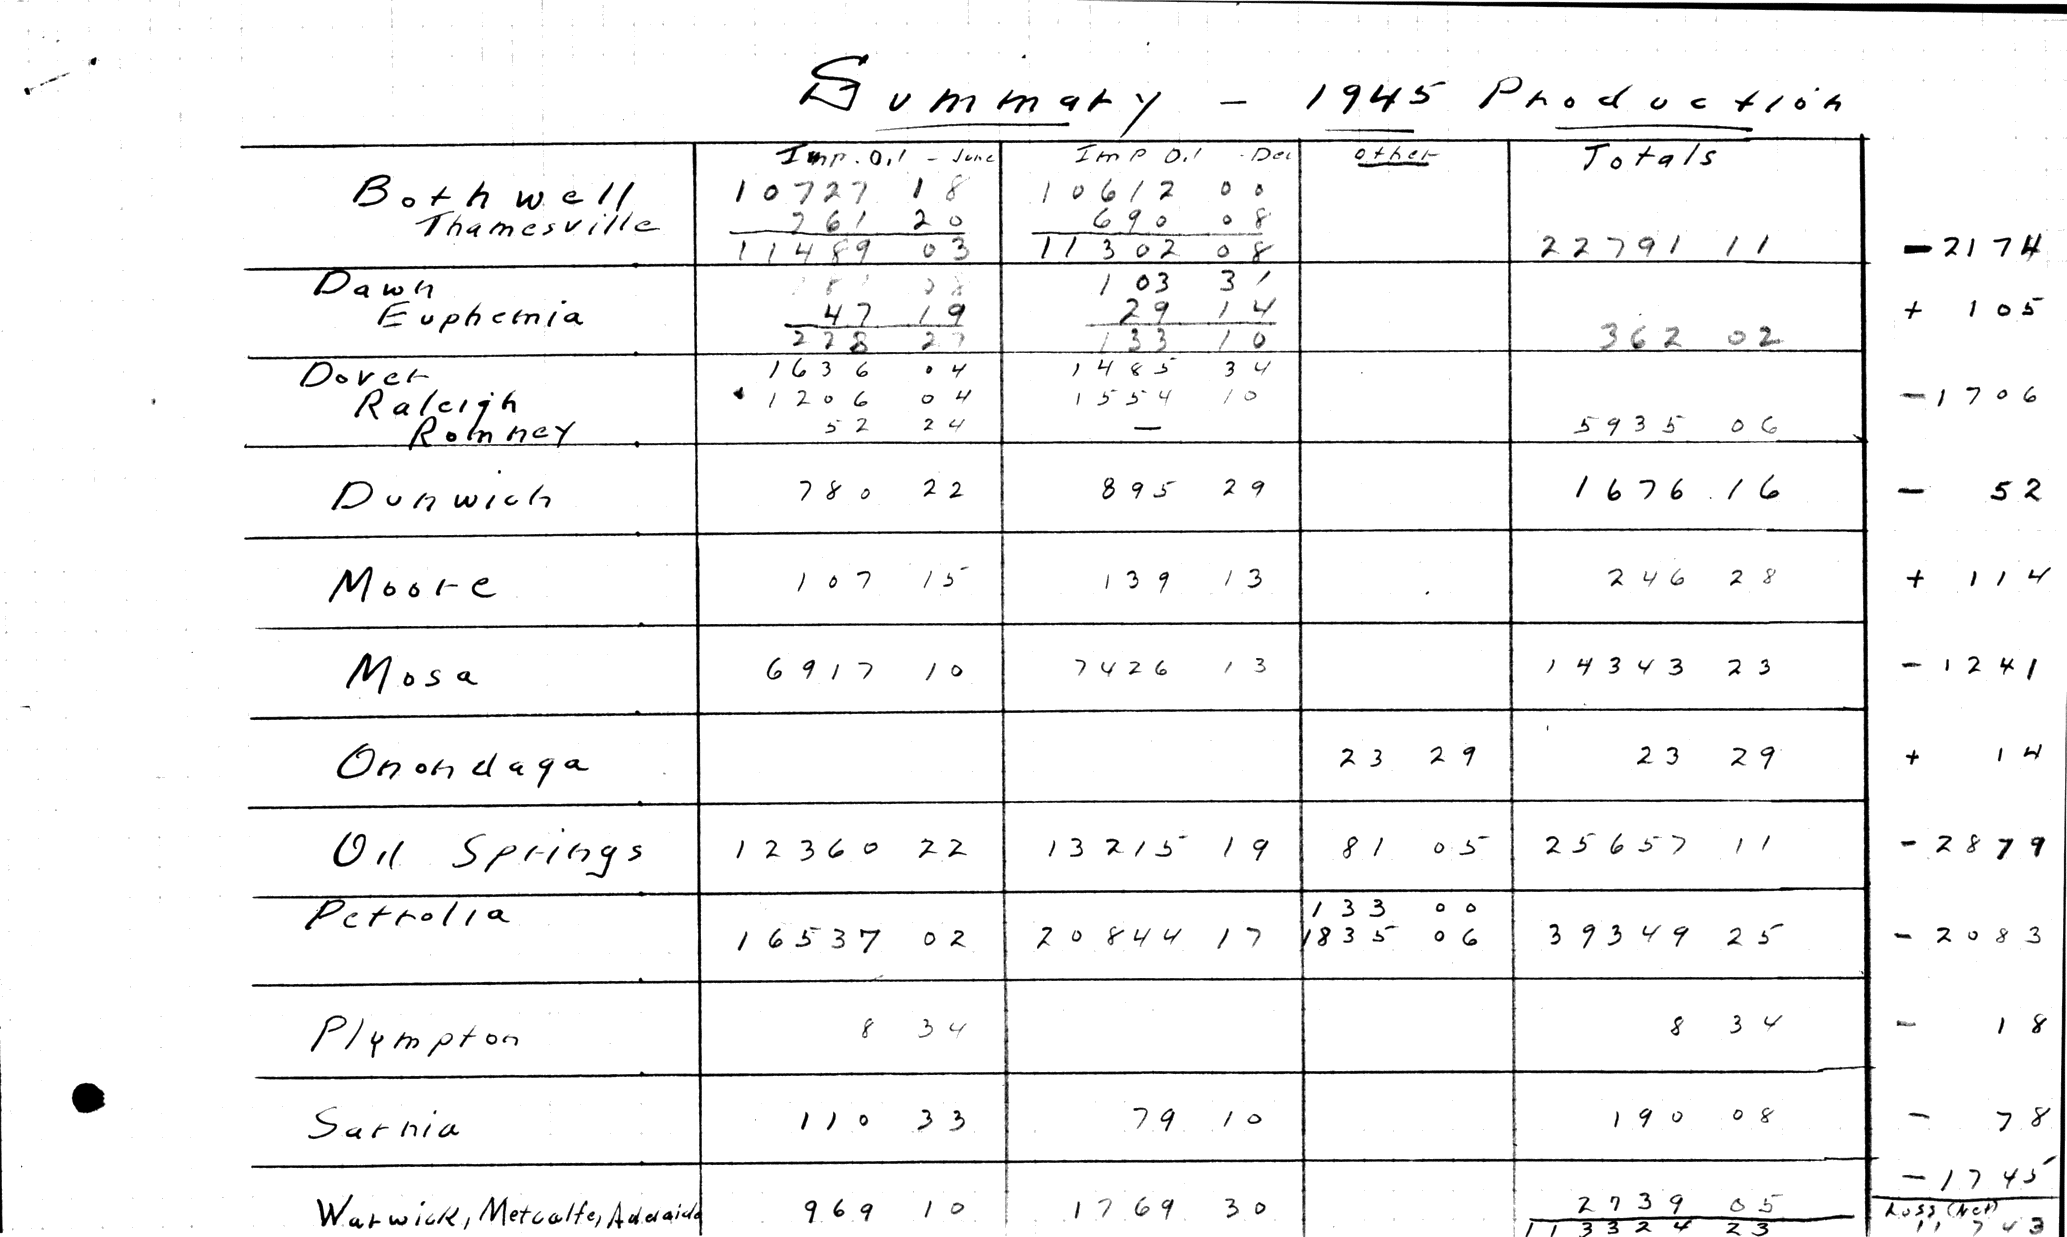 Summary - 1945 Production
Imp. Oil - June Imp Oil - Dec other Totals
Bothwell 10727 18 10612 00
Thamesville 761 20 690 08
11489 03 11302 08 22791 11 - 2174
Dawn 08 103 31
Euphemia 47 19 29 14 + 105
228 27 133 10 362 02
Dover 1636 04 1485 34
Raleigh 1206 04 1554 10 - 1706
Romney 52 24 — 5935 06
Dunwich 780 22 895 29 1676 16 - 52
Moore 107 15 139 13 246 28 + 114
Mosa 6917 10 7426 13 14343 23 - 1241
Onondaga 23 29 23 29 + 14
Oil Springs 12360 22 13215 19 81 05 25657 11 - 2879
Petrolia 133 00
16537 02 20844 17 1835 06 39349 25 - 2083
Plympton 8 34 8 34 - 18
Sarnia 110 33 79 10 190 08 - 78
- 1745
Warwick, Metcalfe, Adelaide 969 10 1769 30 2739 05 Loss (Net)
113324 23 11743